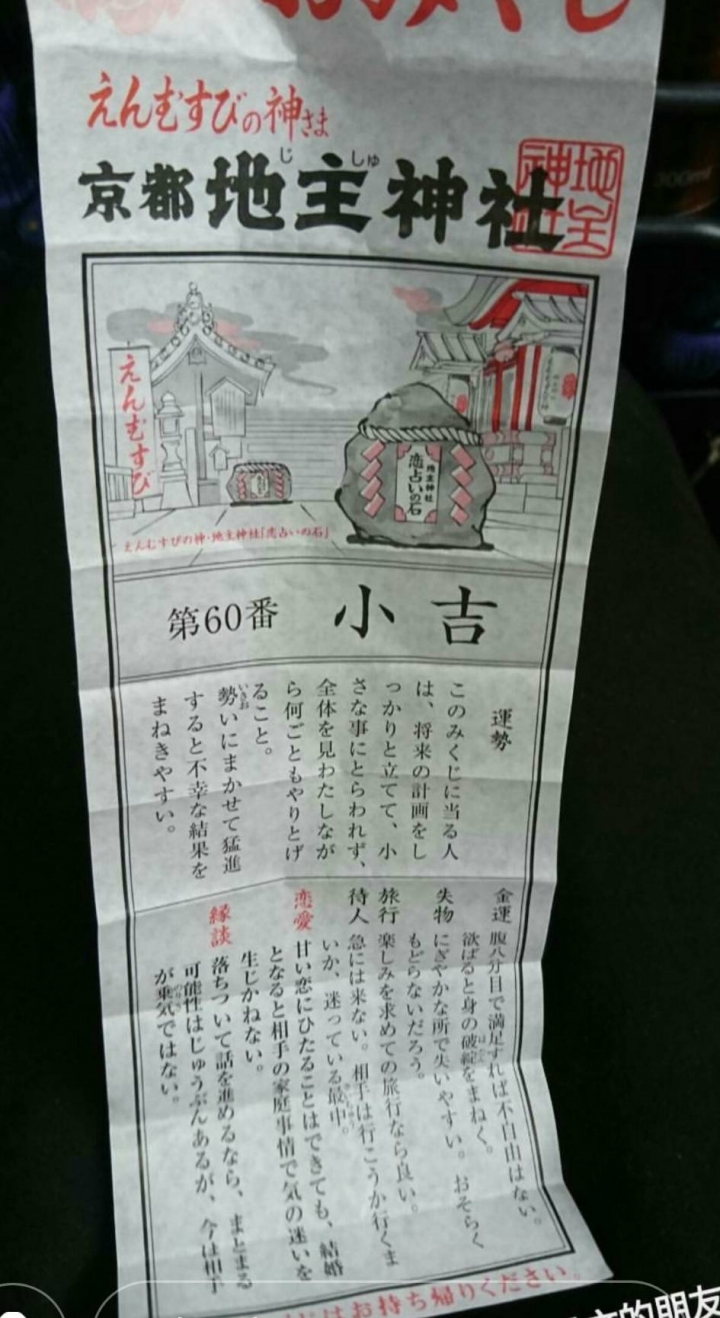 おみくじ
えんむすびの神さま
京都 地主神社
じ しゅ
地主神社
えんむすび
地主神社
恋占いの石
えんむすびの神・地主神社「恋占いの石」
第60番 小吉
運勢
このみくじに当る人
は、将来の計画をし
っかりと立てて、小
さな事にとらわれず、
全体を見わたしなが
ら何ごともやりとげ
ること。
勢いにまかせて猛進
いきお
すると不幸な結果を
まねきやすい。
金運 腹八分目で満足すれば不自由はない。
欲ばると身の破綻をまねく。
はたん
失物 にぎやかな所で失いやすい。おそらく
もどらないだろう。
旅行 楽しみを求めての旅行なら良い。
待人 急には来ない。相手は行こうか行くま
いか、迷っている最中。
恋愛 甘い恋にひたることはできても、結婚
となると相手の家庭事情で気の迷いを
生じかねない。
縁談 落ちついて話を進めるなら、まとまる
可能性はじゅうぶんあるが、今は相手
が乗気ではない。
はお持ち帰りください。
的朋友